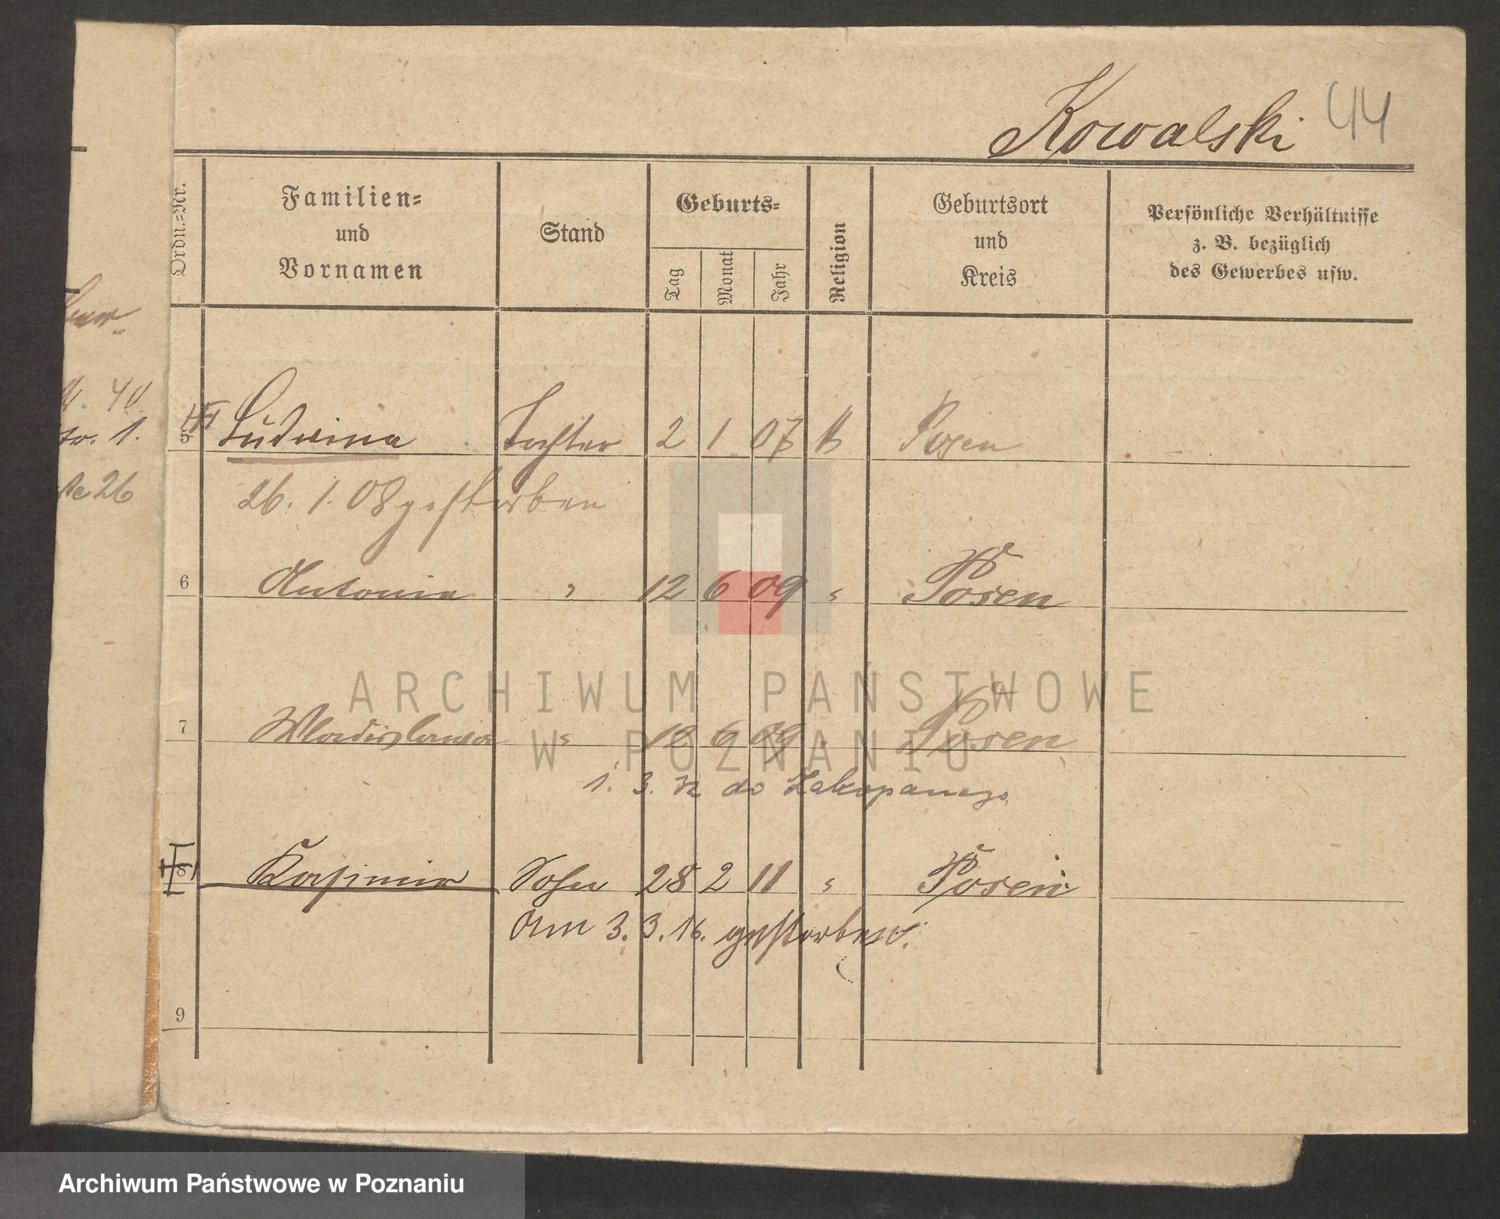 Kowalski 44
Ordn.-Nr.
Familien-
und
Vornamen
Stand
Geburts-
Tag
Monat
Jahr
Religion
Geburtsort
und
Kreis
Persönliche Verhältnisse
z. B. bezüglich
des Gewerbes usw.
40
1.
26
5 Ludwina Tochter 2 1 07 k Posen
26. 1. 08 gestorben
6 Antonia " 12 6 09 " Posen
7 Wladislawa " 12 6 09 " Posen
1. 3. do Zakopanego
8 Kasimir Sohn 28 2 11 " Posen
Am 3. 3. 16. gestorben.
9
ARCHIWUM PAŃSTWOWE
W POZNANIU
Archiwum Państwowe w Poznaniu